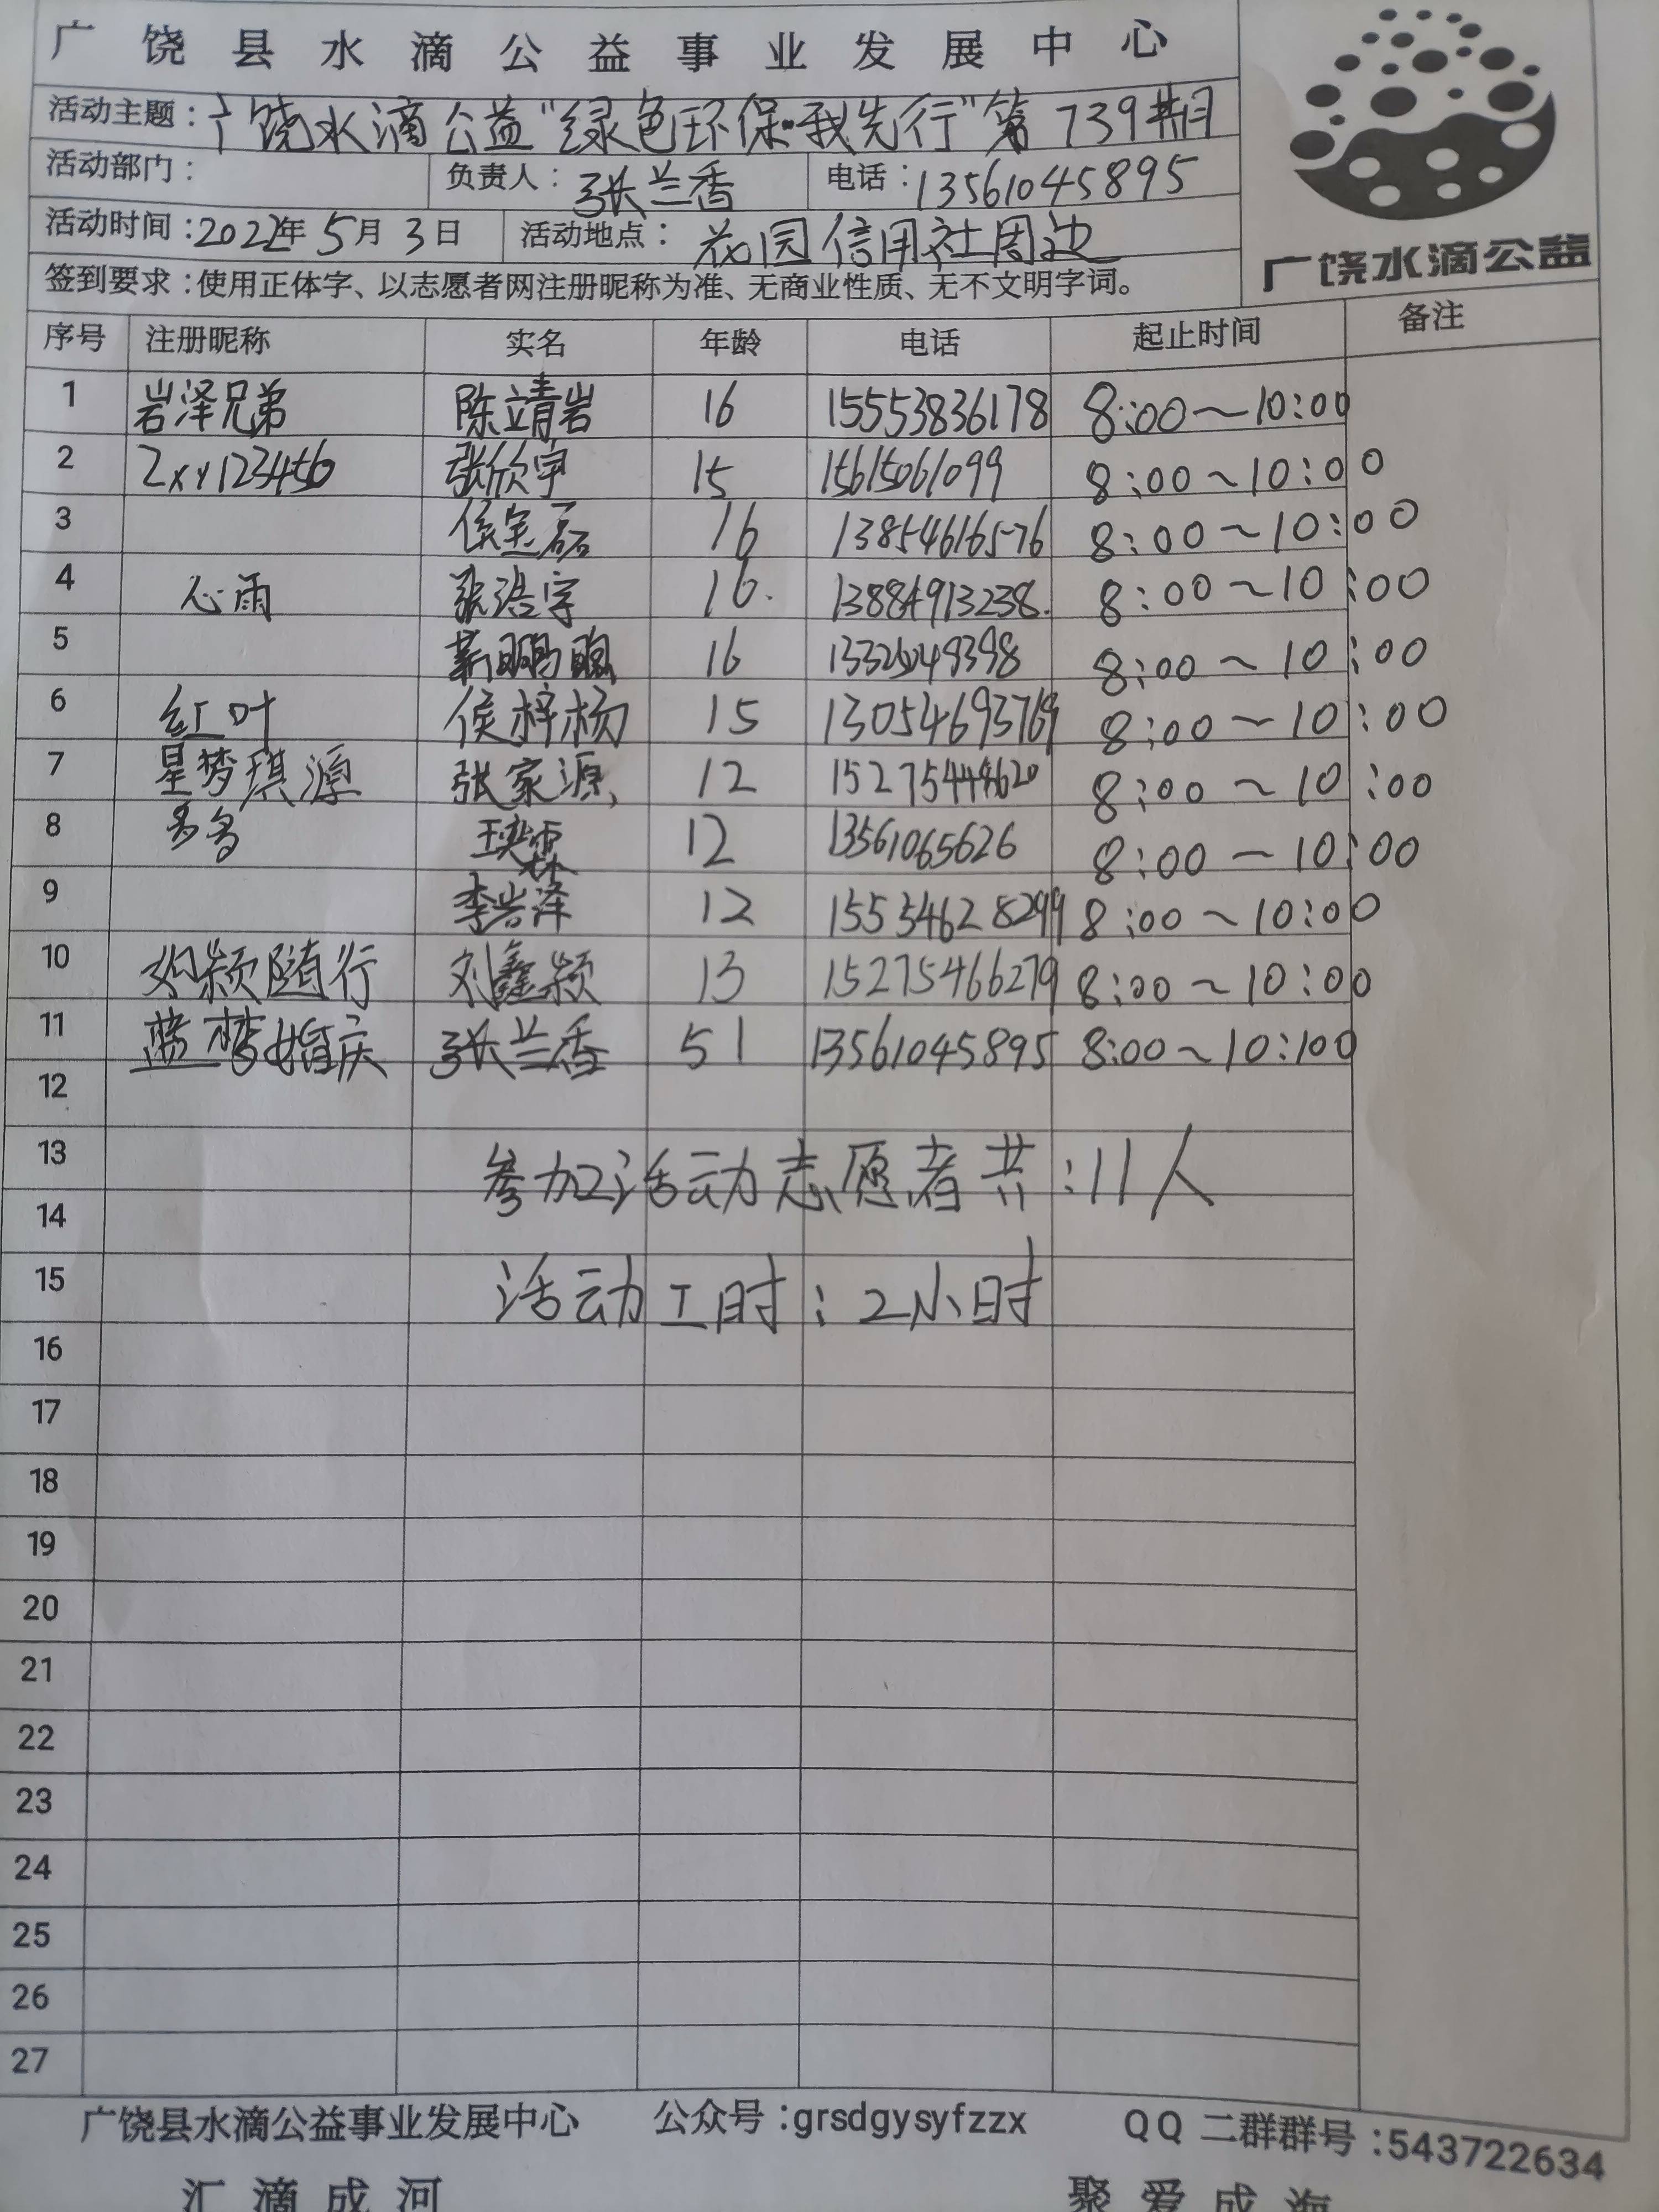 广饶县水滴公益事业发展中心
活动主题：广饶水滴公益“绿色环保·我先行”第739期
活动部门： 负责人：张兰香 电话：13561045895
活动时间：2022年5月3日 活动地点：花园信用社周边
广饶水滴公益
签到要求：使用正体字、以志愿者网注册昵称为准、无商业性质、无不文明字词。
序号 注册昵称 实名 年龄 电话 起止时间 备注
1 岩泽兄弟 陈靖岩 16 15553836178 8:00～10:00
2 Zxy123456 张欣宇 15 15615061099 8:00～10:00
3 侯宝磊 16 13854616576 8:00～10:00
4 心雨 张浩宇 16. 13884913238. 8:00～10:00
5 16 8:00～10:00
6 红叶 侯梓杨 15 13054693769 8:00～10:00
7 星梦琪源 张家源 12 8:00～10:00
8 多多 12 13561065626 8:00—10:00
9 李岩泽 12 15554628299 8:00～10:00
10 随行 刘鑫颖 13 15275466279 8:00～10:00
11 蓝梦婚庆 张兰香 51 13561045895 8:00～10:100
12
13 参加活动志愿者共:11人
14
15 活动工时:2小时
16
17
18
19
20
21
22
23
24
25
26
27
广饶县水滴公益事业发展中心 公众号:grsdgysyfzzx QQ二群群号:543722634
汇滴成河 聚爱成海